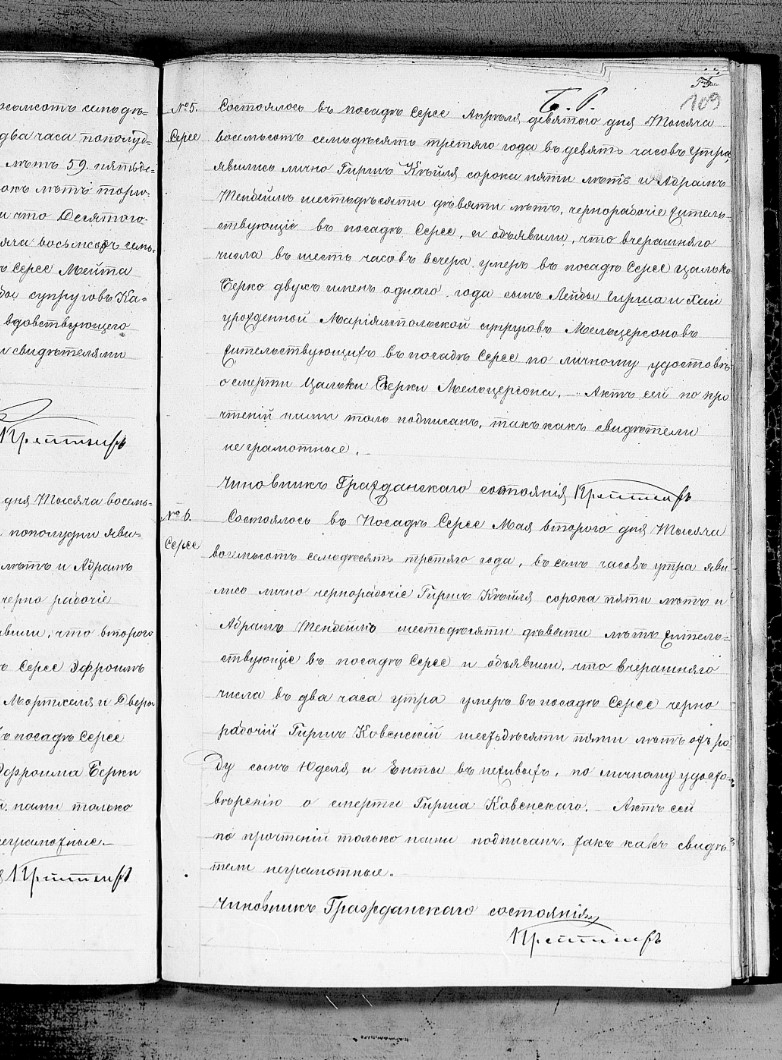 восьмсотъ семьдѣ-
два часа пополуд-
лѣтъ 59 пятьде-
что Десятого
восьмсотъ семь-
Серее Мейта
супруговъ Ка-
вдовствующего
свидѣтелями
Креттигеръ
дня Тысяча восемь-
пополудни яви-
лѣтъ и Абрамъ
черно рабочіе
что второго
Серее Эфроимъ
Мортхеля и Двера
посадѣ Серее
Эфроима Берки
нами только
неграмотные.
54
109
Б. Р.
№ 5. Состоялось въ посадѣ Серее Апрѣля девятого дня Тысяча
Серее восемьсотъ семьдѣсятъ третяго года въ девять часовъ утра
явились лично Гиршъ Кнѣйля сорока пяти лѣтъ и Абрамъ
Мендѣимъ шестьдѣсяти дѣвяти лѣтъ, чернорабочіе жител-
ствующіе въ посадѣ Серее, и объявили, что вчерашняго
числа въ шесть часовъ вечера умеръ въ посадѣ Серее Цалько
Берко двухъ именъ однаго года сынъ Лейбы Гирша и Хаи
урожденной Маріямпольской супруговъ Мельцерсоновъ
жительствующихъ въ посадѣ Серее по личному удостовѣ-
о смерти Цальки Берки Мельцерсона. Актъ сей по про
чтеній нами толь подписанъ, такъ какъ свидѣтели
неграмотные.
Чиновникъ Гражданскаго состоянія Креттигеръ
№ 6. Состоялось въ Посадѣ Серее Мая второго дня Тысяча
Серее восемьсотъ семьдѣсятъ третяго года, въ семь часовъ утра яви-
лись лично чернорабочіе Гиршъ Кнѣйля сорока пяти лѣтъ и
Абрамъ Мендѣимъ шестьдѣсяти дѣвяти лѣтъ жител-
ствующіе въ посадѣ Серее и объявили, что вчерашняго
числа въ два часа утра умеръ въ посадѣ Серее черно
рабочій Гиршъ Ковенскій шестьдѣсяти пяти лѣтъ отъ ро
ду сынъ Юделя и Енты въ неживыхъ, по личному удосто-
вѣренію о смерти Гирша Ковенскаго. Актъ сей
по прочтеній только нами подписанъ, такъ какъ свидѣ-
тели неграмотные.
Чиновникъ Гражданскаго состоянія
Креттигеръ